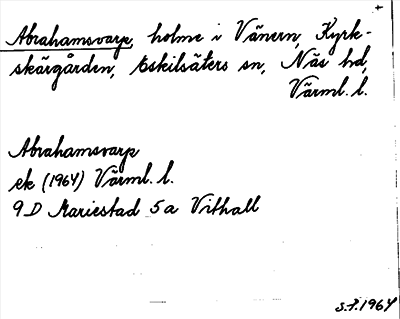 +
Abrahamsvarp, holme i Vänern, Kyrk-
skärgården, Eskilsäters sn, Näs hd,
Värml. l.
Abrahamsvarp
ek (1964) Värml. l.
9D Mariestad 5a Vithall
S.F. 1964